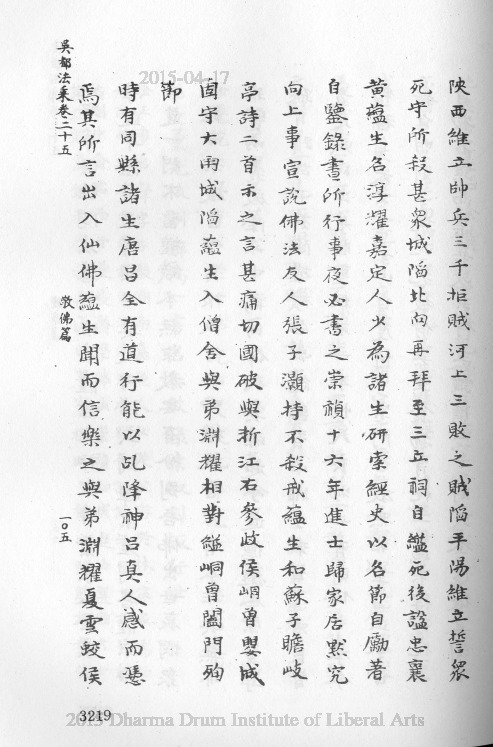 陝西維立帥兵三千拒賊河上三敗之賊陷平陽維立誓眾
死守所殺甚眾城陷北向再拜至三立祠自縊死後諡忠襄
黃蘊生名淳耀嘉定人少為諸生研索經史以名節自勵著
自鑒錄書所行事夜必書之崇禎十六年進士歸家居默究
向上事宣說佛法友人張子灝持不殺戒蘊生和蘇子瞻岐
亭詩二首示之言甚痛切國破與浙江右參政侯峒曾嬰城
固守大雨城陷蘊生入僧舍與弟淵耀相對縊峒曾闔門殉
節
時有同縣諸生唐呂全有道行能以乩降神呂真人感而憑
焉其所言出入仙佛蘊生聞而信樂之與弟淵耀夏雪蛟侯
吳都法乘卷二十五
教佛篇
一〇五
3219
2015-04-17
2015 Dharma Drum Institute of Liberal Arts